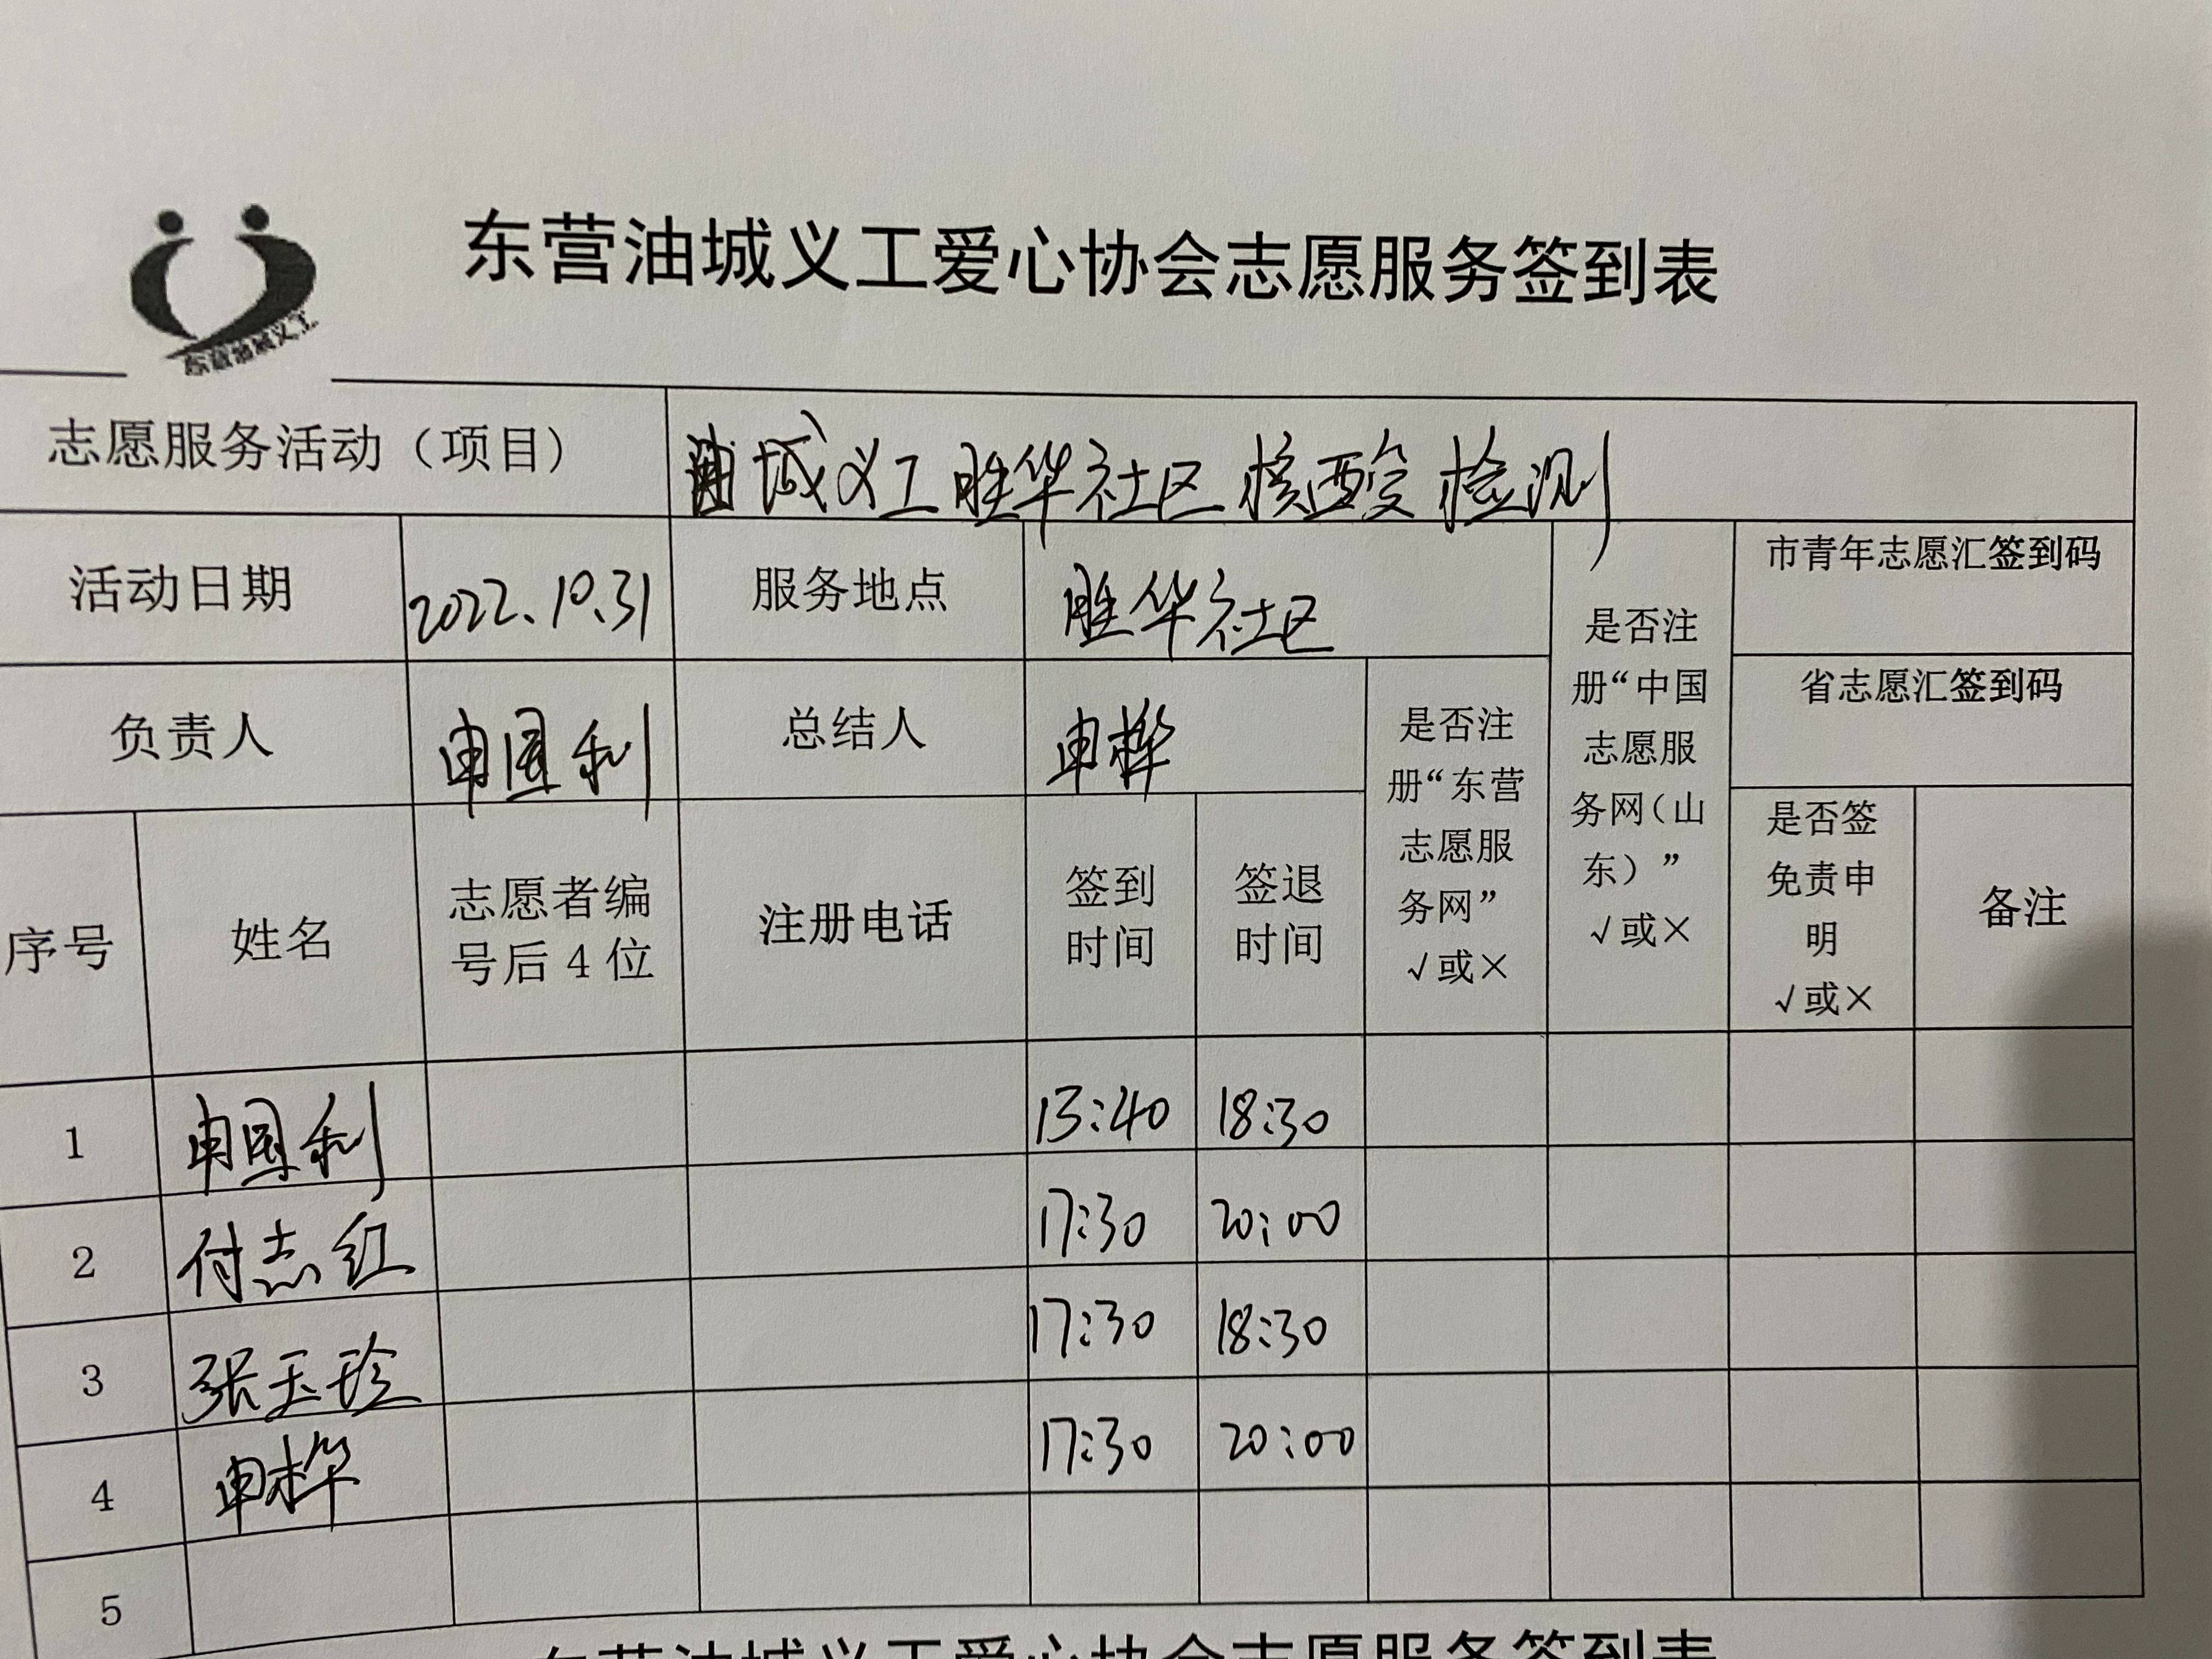 东营油城义工爱心协会志愿服务签到表
东营油城义工
志愿服务活动（项目） 油城义工胜华社区核酸检测
活动日期 2022.10.31 服务地点 胜华社区
市青年志愿汇签到码
省志愿汇签到码
负责人 申国利 总结人 申桦
序号
姓名
志愿者编
号后4位
注册电话
签到
时间
签退
时间
是否注
册“东营
志愿服
务网”
√或×
是否注
册“中国
志愿服
务网（山
东）”
√或×
是否签
免责申
明
√或×
备注
1 申国利 13:40 18:30
2 付志红 17:30 20:00
3 张玉珍 17:30 18:30
4 申桦 17:30 20:00
5
东营油城义工爱心协会志愿服务签到表